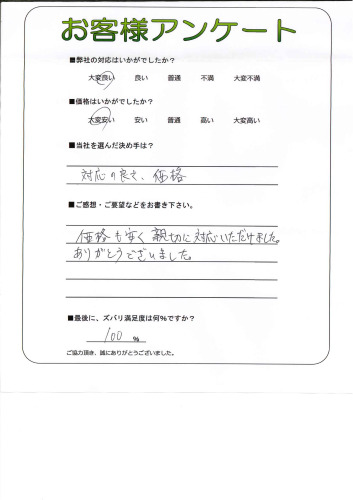 お客様アンケート
■弊社の対応はいかがでしたか?
大変良い 良い 普通 不満 大変不満
■価格はいかがでしたか?
大変安い 安い 普通 高い 大変高い
■当社を選んだ決め手は?
対応の良さ、価格
■ご感想・ご要望などをお書き下さい。
価格も安く親切に対応いただけました。
ありがとうございました。
■最後に、ズバリ満足度は何%ですか?
100 %
ご協力頂き、誠にありがとうございました。